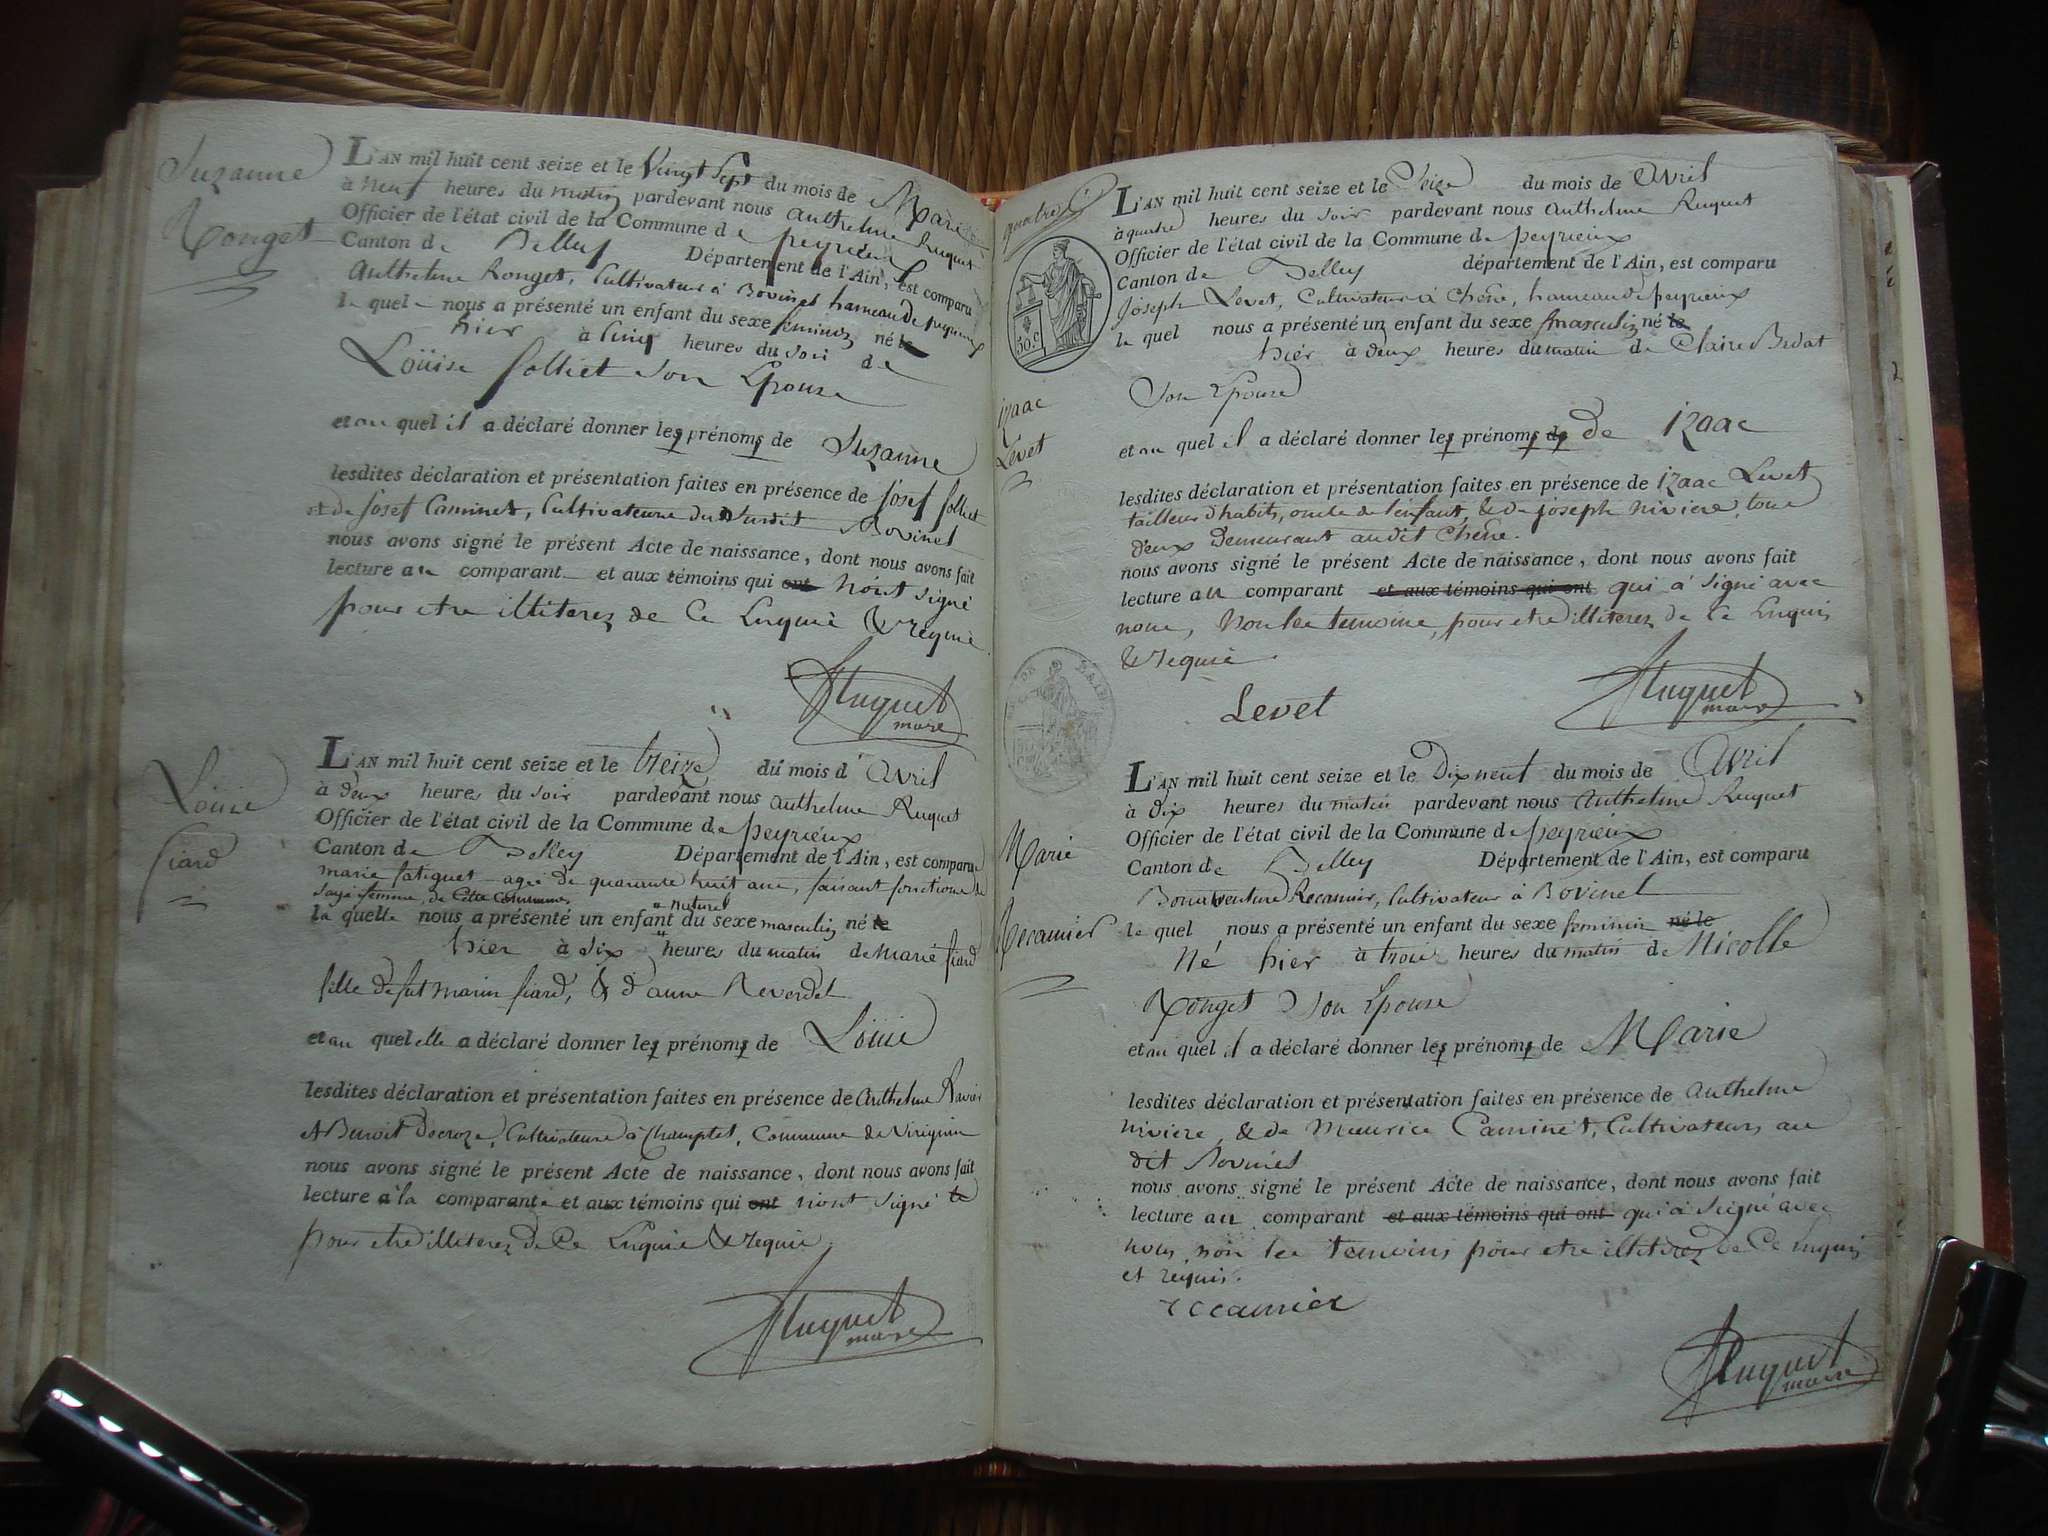 Suzanne
Rouget
L'AN mil huit cent seize et le Vingt Sept du mois de Mars
à neuf heures du matin pardevant nous Anthelme Ruquet
Officier de l'état civil de la Commune de peyrieux
Canton de Belley Département de l'Ain, est comparu
Anthelme Rouget, Cultivateur à Bovinel hameau de peyrieux
le quel nous a présenté un enfant du sexe feminin né le
hier à Cinq heures du soir de
Loüise folliet son Epouse
et au quel il a déclaré donner les prénoms de Suzanne
lesdites déclaration et présentation faites en présence de Josef folliet
et de Josef Caminet, Cultivateurs du Susdit Bovinel
nous avons signé le présent Acte de naissance, dont nous avons fait
lecture au comparant et aux témoins qui ont n'ont signé
pour etre illiterez de Ce Enquis & requis
Ruquet
maire
Loüis
fiard
L'AN mil huit cent seize et le treize du mois d'Avril
à deux heures du soir pardevant nous Anthelme Ruquet
Officier de l'état civil de la Commune de peyrieux
Canton de Belley Département de l'Ain, est comparue
marie fatiguet agée de quarante huit ans, faisant fonctions de
sage femme, de Cette Commune,
naturel
la quelle nous a présenté un enfant du sexe masculin né le
hier à dix heures du matin de marie fiard
fille de fut marin fiard, & d'anne Reverdel
et au quel elle a déclaré donner les prénoms de Loüis
lesdites déclaration et présentation faites en présence de Anthelme Ravier
et Benoit Decroze, Cultivateurs à Champtel, Commune de Virignin
nous avons signé le présent Acte de naissance, dont nous avons fait
lecture à la comparante et aux témoins qui ont n'ont signé
pour etre illiterez de Ce Enquis & requis
Ruquet
maire
quatre
50.C
L'AN mil huit cent seize et le Seize du mois de Avril
à quatre heures du soir pardevant nous Anthelme Ruquet
Officier de l'état civil de la Commune de peyrieux
Canton de Belley département de l'Ain, est comparu
Joseph Levet, Cultivateur à Chêne, hameau de peyrieux
le quel nous a présenté un enfant du sexe masculin né le
hier à deux heures du matin de Claire Bidat
Son Epouse
izaac
Levet
et au quel il a déclaré donner les prénoms de de izaac
lesdites déclaration et présentation faites en présence de izaac Levet
tailleur d'habits, oncle de l'enfant, & de joseph niviere, tous
deux demeurant audit Chêne.
nous avons signé le présent Acte de naissance, dont nous avons fait
lecture au comparant et aux témoins qui ont qui a signé avec
nous, non les temoins, pour etre illiterez de Ce Enquis
& requis
Levet
Ruquet
maire
L'AN mil huit cent seize et le Dix neuf du mois de Avril
à dix heures du matin pardevant nous Anthelme Ruquet
Officier de l'état civil de la Commune de peyrieux
Canton de Belley Département de l'Ain, est comparu
Bonnaventure Recamier, Cultivateur à Bovinel
Marie
Recamier
le quel nous a présenté un enfant du sexe feminin né le
Né hier à trois heures du matin de Nicolle
Rouget Son Epouse
et au quel il a déclaré donner les prénoms de Marie
lesdites déclaration et présentation faites en présence de Anthelme
niviere, & de Meurice Caminet, Cultivateurs au
dit Bovinel
nous avons signé le présent Acte de naissance, dont nous avons fait
lecture au comparant et aux témoins qui ont qui a signé avec
nous non les temoins pour etre illiterez de Ce Enquis
et requis.
recamier
Ruquet
maire